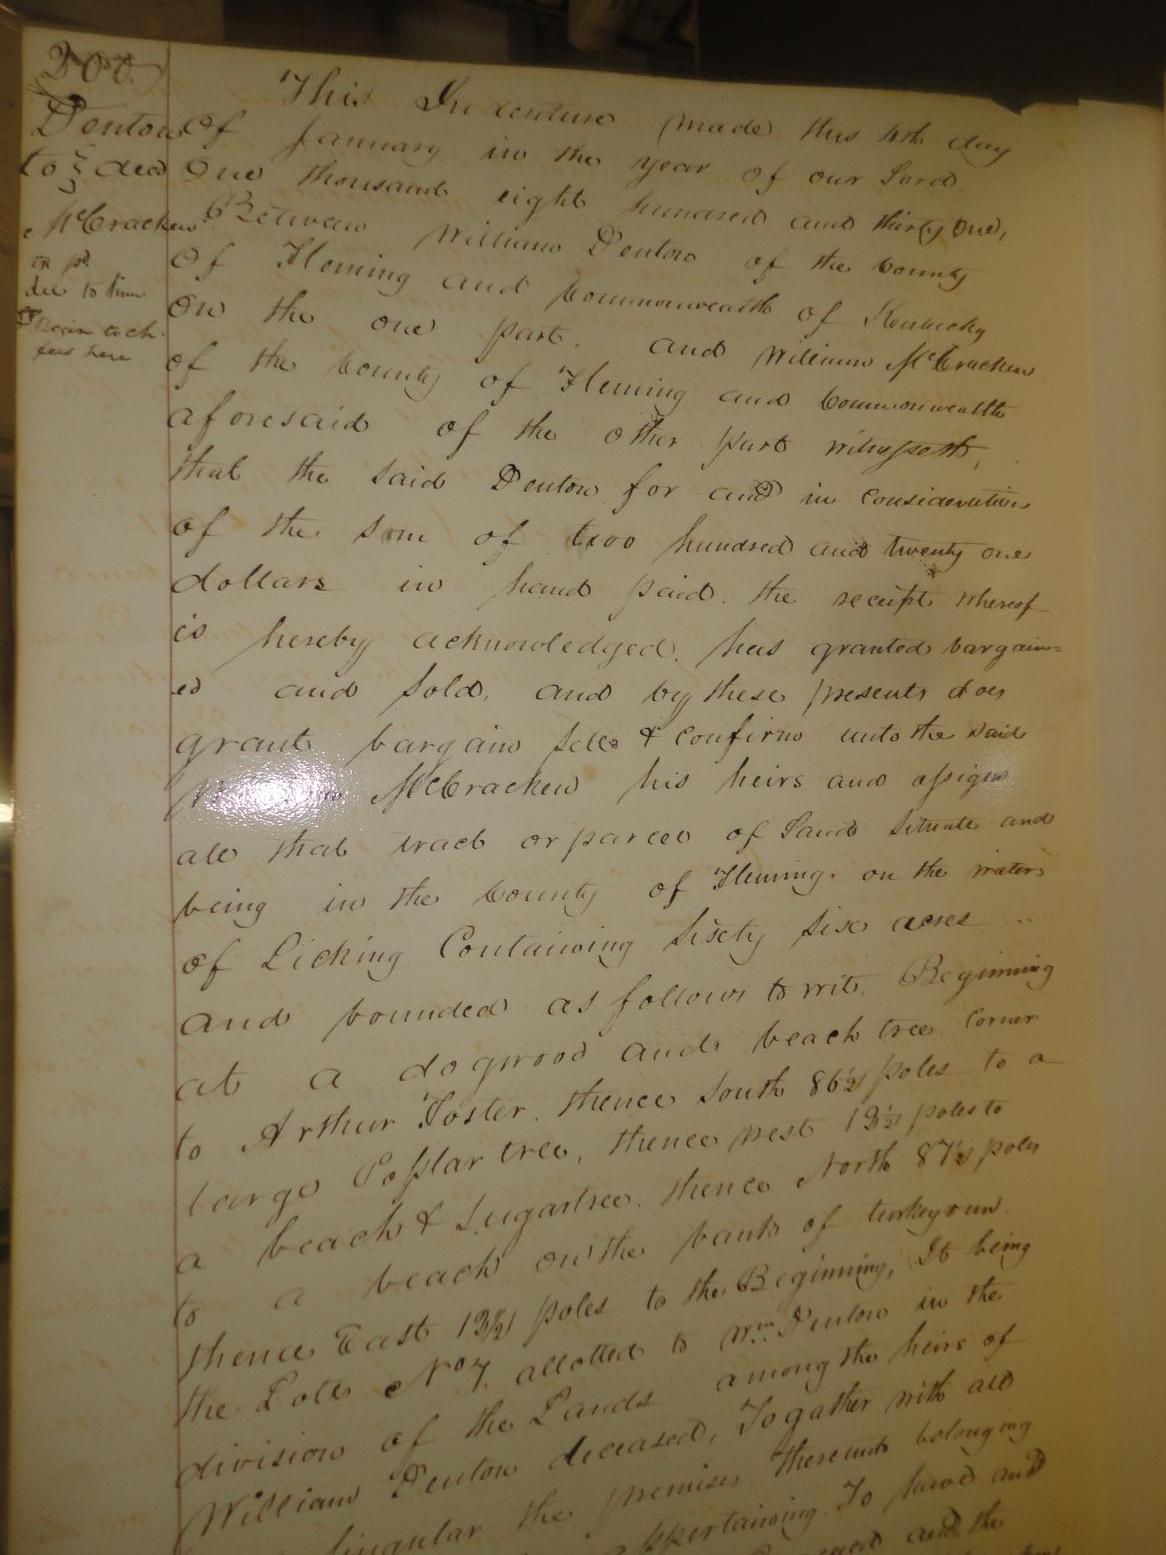 200
Denton
to } deed
McCracken
dee to him
fees here
This Indenture made this 4th day
of January in the year of our Lord
One thousand eight hundred and thirty one,
Between William Denton of the County
of Fleming and Commonwealth of Kentucky
on the one part. and William McCracken
of the County of Fleming and Commonwealth
aforesaid of the other part witnesseth,
that the said Denton for and in consideration
of the sum of two hundred and twenty one
dollars in hand paid. the receipt whereof
is hereby acknowledged. has granted bargain=
ed and sold, and by these presents does
grant bargain sell & confirm unto the said
William McCracken his heirs and assigns
all that tract or parcel of Land situate and
being in the County of Fleming. on the waters
of Licking Containing sixty six acres
and bounded as follows to wit. Beginning
at a dogwood and beach tree corner
to Arthur Foster. thence South 86½ poles to a
large Poplar tree, thence west 131½ poles to
a beach & Sugartree. thence North 87½ poles
to a beach on the bank of turkeyrun.
thence East 131½ poles to the Beginning, It being
the Lott No 7. allotted to Wm Denton in the
division of the Lands among the heirs of
William Denton deceased, Together with all
singular the premises thereunto belonging
appertaining. To have and
and the